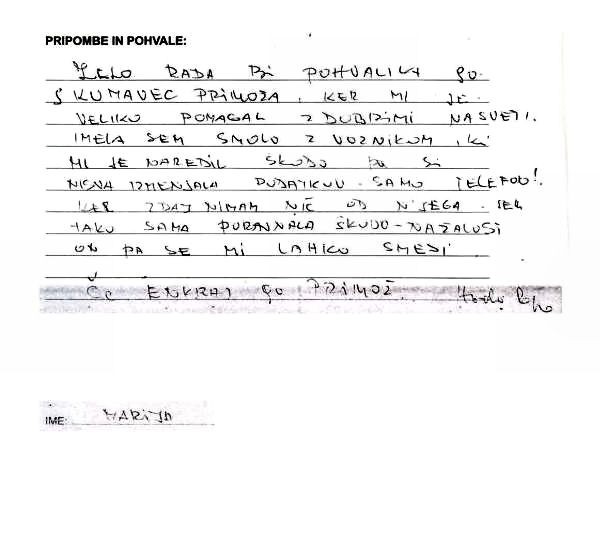 PRIPOMBE IN POHVALE:
ZELO RADA BI POHVALILA go.
SKUMAVEC PRIMOŽA, KER MI JE
VELIKO POMAGAL Z DOBRIMI NASVETI.
IMELA SEM SMOLO Z VOZNIKOM, KI
MI JE NAREDIL ŠKODO PA SI
NISVA IZMENJALA PODATKOV. SAMO TELEFON!
KER ZDAJ NIMAM NIČ OD NJEGA. SEM
TAKO SAMA PORAVNALA ŠKODO - NAŽALOST
ON PA SE MI LAHKO SMEJI
Še ENKRAT go PRIMOŽ. Hvala
IME: MARIJA